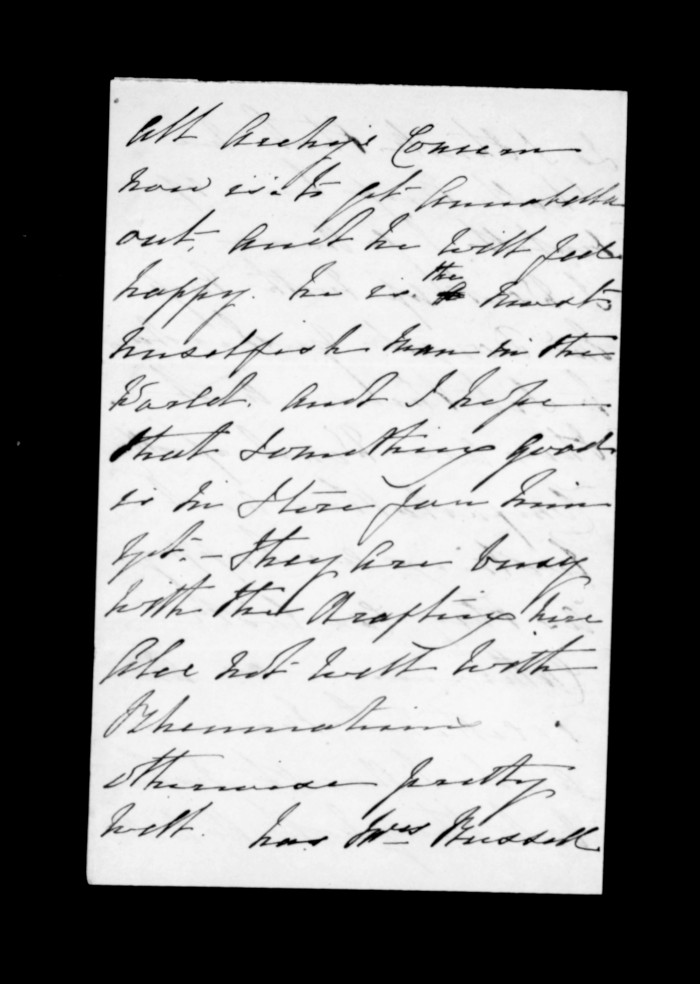 All Archy's Concern
now is to get Annabella
out, and he will feel
happy. he is the most
unselfish man in the
World. and I hope
that something good
is in store for him
yet. - They are busy
with the drafting here
Alec not well with
Rheumatism
otherwise pretty
well. has Mrs Russell